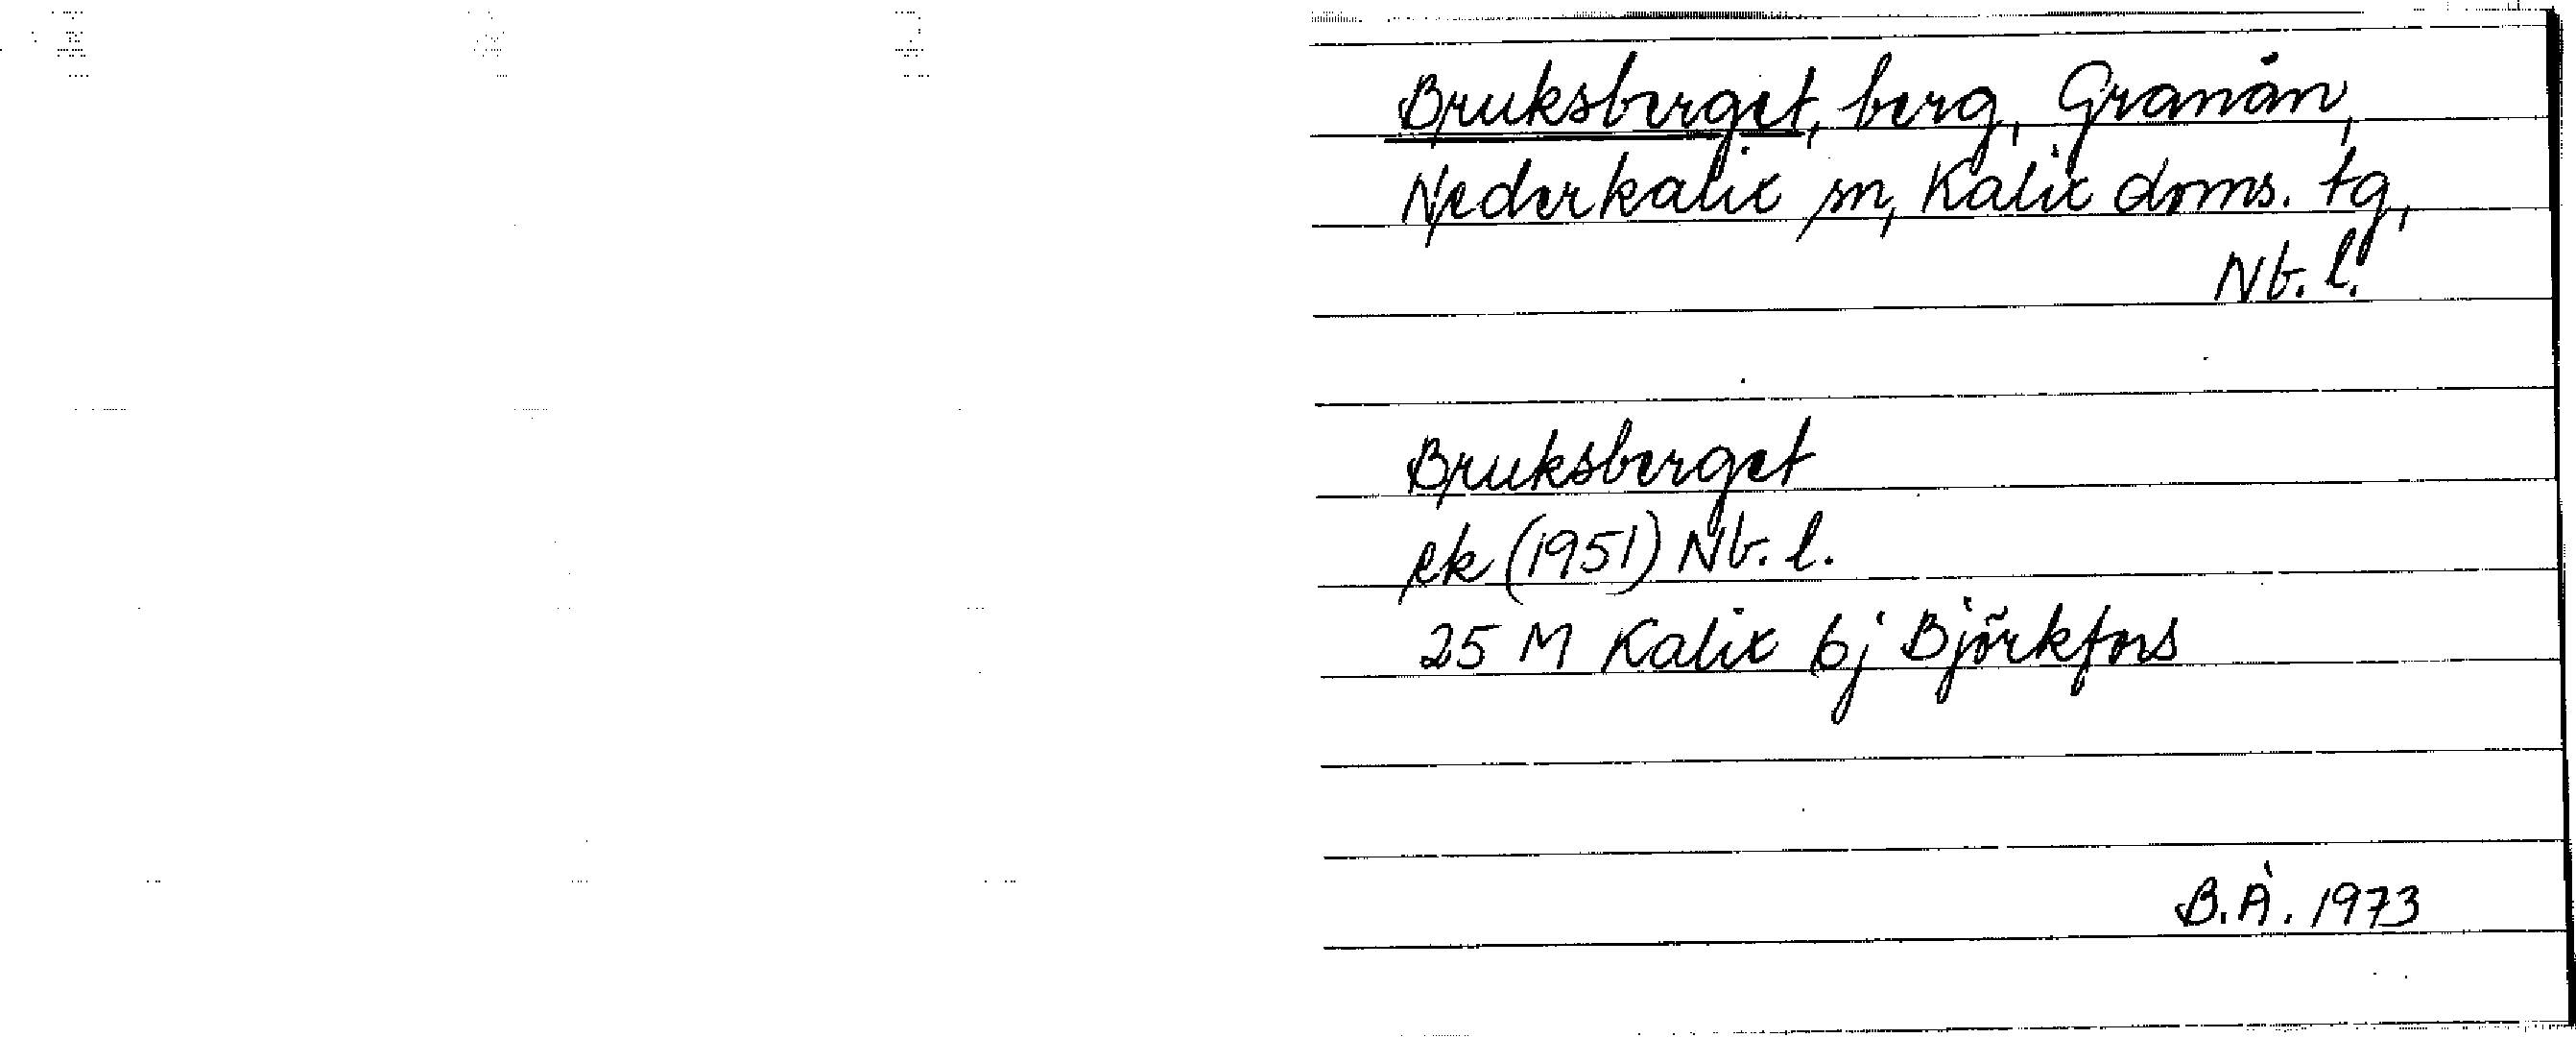 Bruksberget, berg, Granån,
Nederkalix sn, Kalix doms. tg,
Nb. l.
Bruksberget
ek (1951) Nb. l.
25 M Kalix bj Björkfors
B.Å. 1973